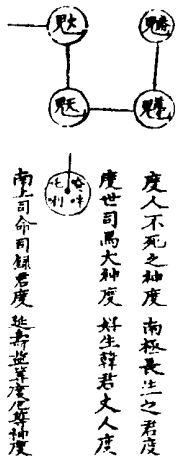 度人不死之神度 南極長生之君度
度世司馬大神度 好生韓君丈人度
南上司命司録君度 延壽益筭度厄尊神度